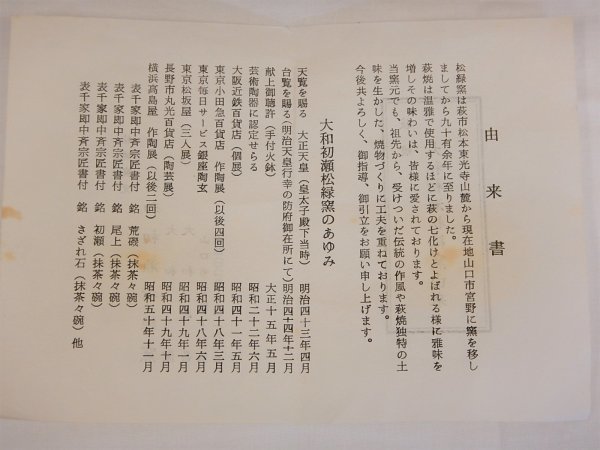 由来書
松緑窯は萩市松本東光寺山麓から現在地山口市宮野に窯を移し
ましてから九十有余年に至りました。
萩焼は温雅で使用するほどに萩の七化けとよばれる様に雅味を
増しその味わいは、皆様に愛されております。
当窯元でも、祖先から、受けついだ伝統の作風や萩焼独特の土
味を生かした、焼物づくりに工夫を重ねております。
今後共よろしく、御指導、御引立をお願い申し上げます。
大和初瀬松緑窯のあゆみ
天覧を賜る 大正天皇(皇太子殿下当時) 明治四十三年四月
台覧を賜る(明治天皇行幸の防府御在所にて)明治四十四年十二月
献上御聴許(手付火鉢) 大正十五年五月
芸術陶器に認定せらる 昭和二十二年六月
大阪近鉄百貨店(個展) 昭和四十一年五月
東京小田急百貨店 作陶展(以後四回) 昭和四十八年三月
東京毎日サービス銀座陶玄 昭和四十八年六月
東京松坂屋(三人展) 昭和四十九年一月
長野市丸光百貨店(陶芸展) 昭和四十九年十月
横浜高島屋 作陶展(以後二回) 昭和五十年十一月
表千家即中斉宗匠書付 銘 荒磯(抹茶々碗)
表千家即中斉宗匠書付 銘 尾上(抹茶々碗)
表千家即中斉宗匠書付 銘 初瀬(抹茶々碗)
表千家即中斉宗匠書付 銘 きざれ石(抹茶々碗)他